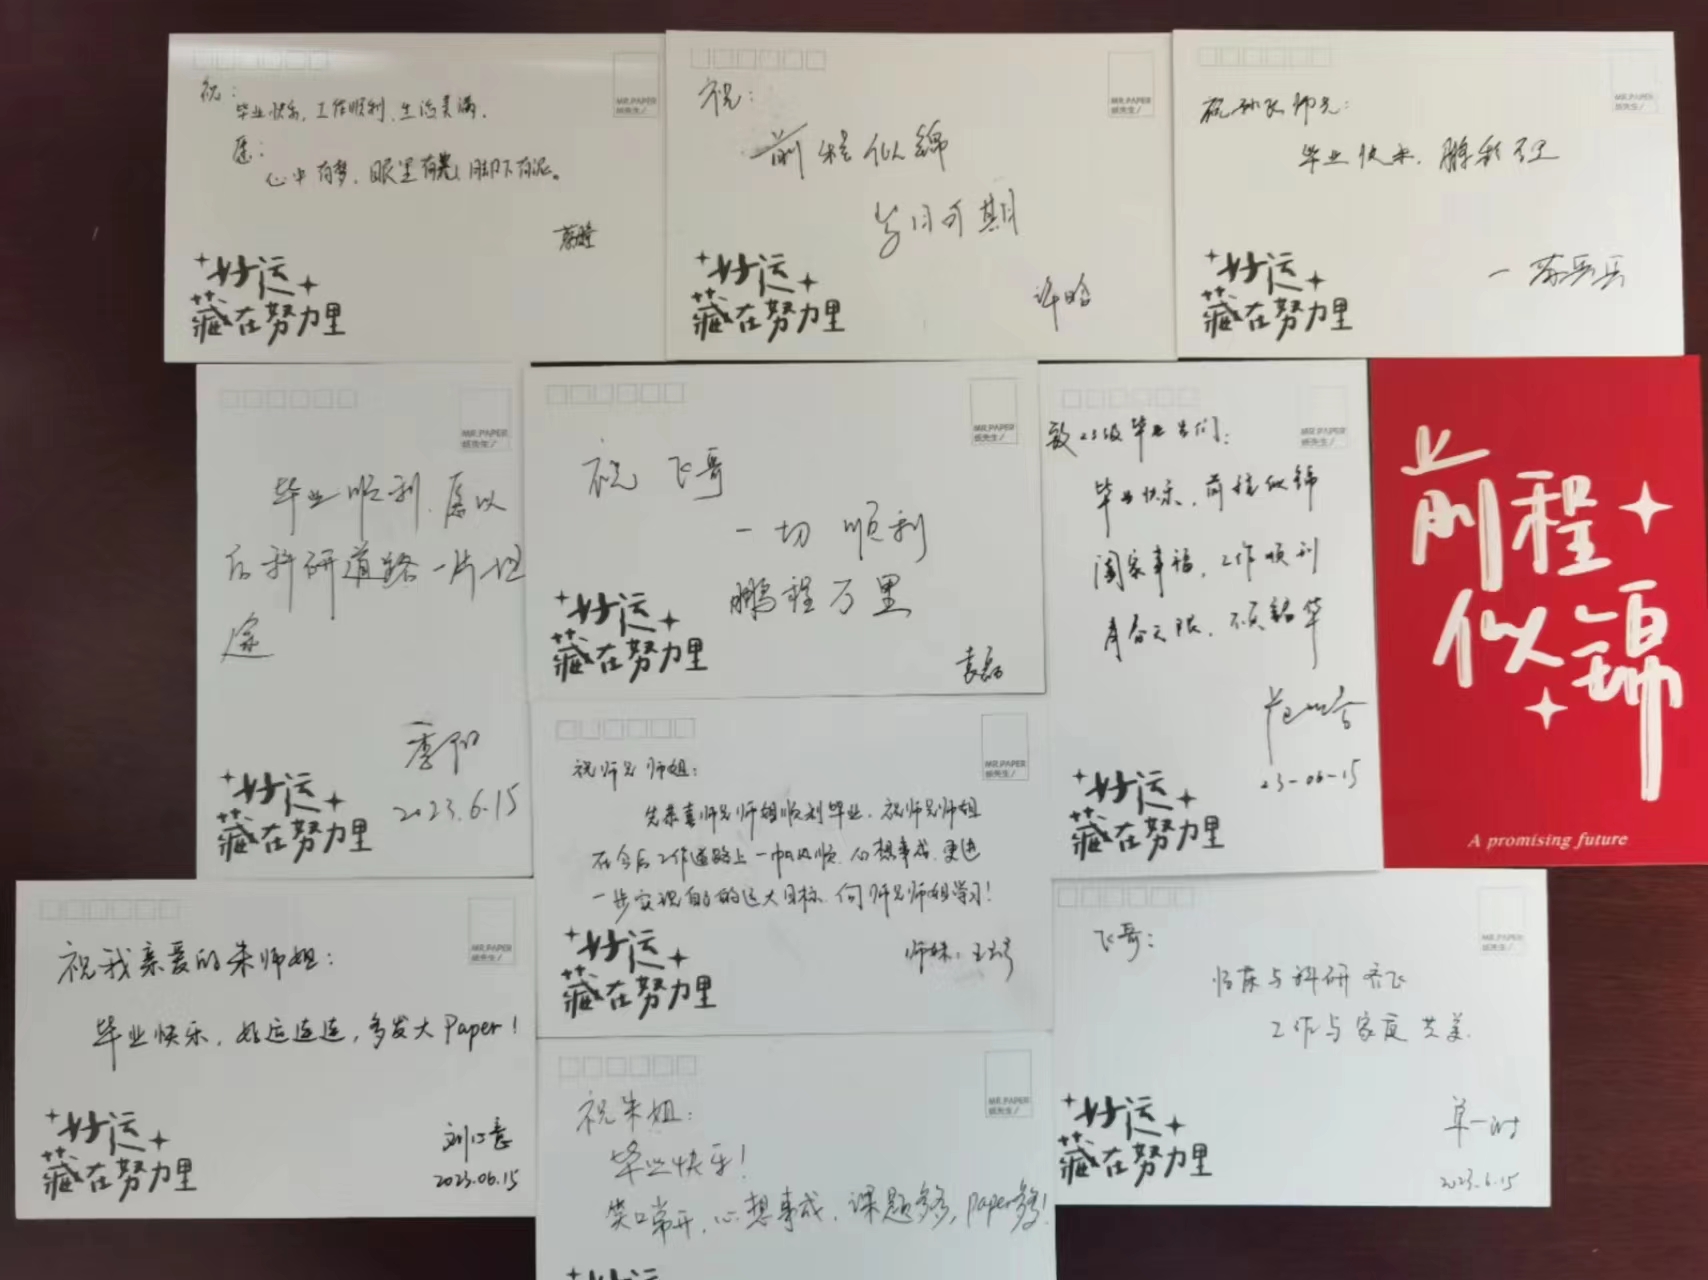 MR.PAPER
纸先生/
祝:
毕业快乐,工作顺利,生活美满.
愿:
心中有梦,眼里有光,脚下有泥。
好运
藏在努力里
MR.PAPER
纸先生/
祝:
前程似锦
岁月可期
许晗
好运
藏在努力里
MR.PAPER
纸先生/
祝孙飞师兄:
毕业快乐,鹏程万里
好运
藏在努力里
MR.PAPER
纸先生/
毕业顺利,愿以
后科研道路一片坦
途
季阳
2023.6.15
好运
藏在努力里
MR.PAPER
纸先生/
祝 飞哥
一切 顺利
鹏程万里
袁磊
好运
藏在努力里
MR.PAPER
纸先生/
致23级毕业生们:
毕业快乐,前程似锦
阖家幸福,工作顺利
青春无限,不负韶华
23-06-15
好运
藏在努力里
前程
似锦
A promising future
MR.PAPER
纸先生/
祝师兄师姐:
先恭喜师兄师姐顺利毕业,祝师兄师姐
在今后工作道路上一帆风顺,心想事成,更进
一步实现自己的远大目标,向师兄师姐学习!
师妹:王
好运
藏在努力里
MR.PAPER
纸先生/
祝我亲爱的朱师姐:
毕业快乐,好运连连,多发大Paper!
刘心意
2023.06.15
好运
藏在努力里
MR.PAPER
纸先生/
飞哥:
临床与科研齐飞
工作与家庭共美.
单一
2023.6.15
好运
藏在努力里
MR.PAPER
纸先生/
祝朱姐:
毕业快乐!
笑口常开,心想事成,课题多多,paper多多!
好运